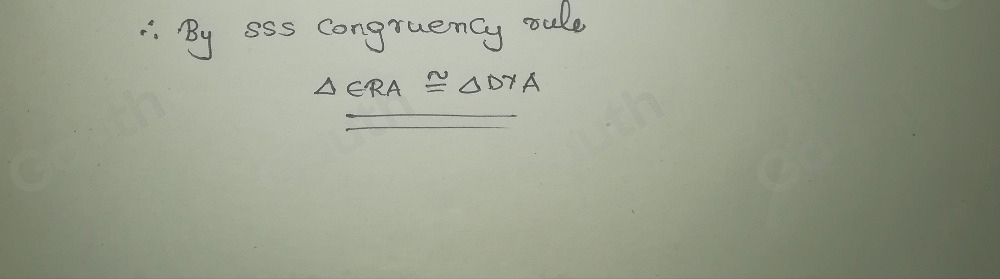 ∴ By SSS Congruency rule
△ ERA ≅ △DYA